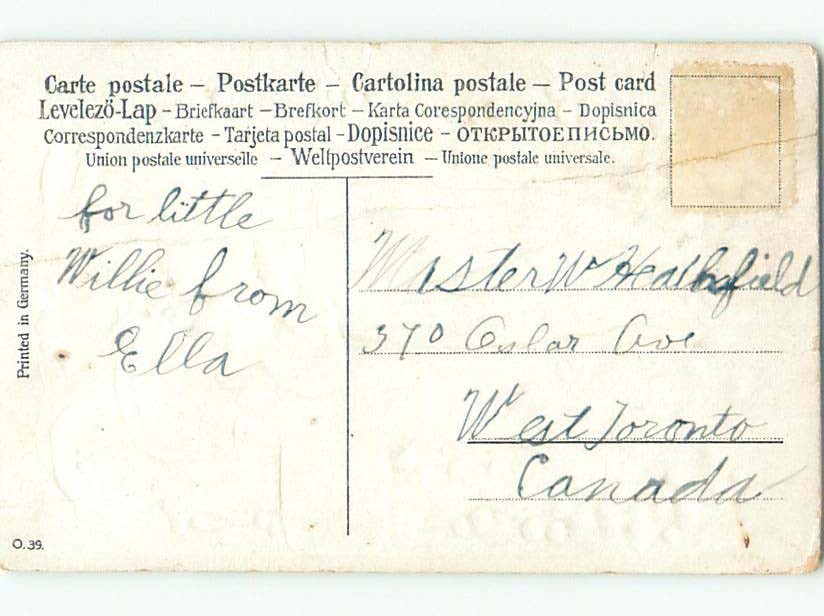 Carte postale – Postkarte – Cartolina postale – Post card
Levelező-Lap – Briefkaart – Brefkort – Karta Corespondencyjna – Dopisnica
Correspondenzkarte – Tarjeta postal – Dopisnice – ОТКРЫТОЕ ПИСЬМО.
Union postale universelle – Weltpostverein – Unione postale universale.
Printed in Germany.
for little
Willie from
Ella
Master W Heathfield
370 Osler Ave
West Toronto
Canada
O.39.